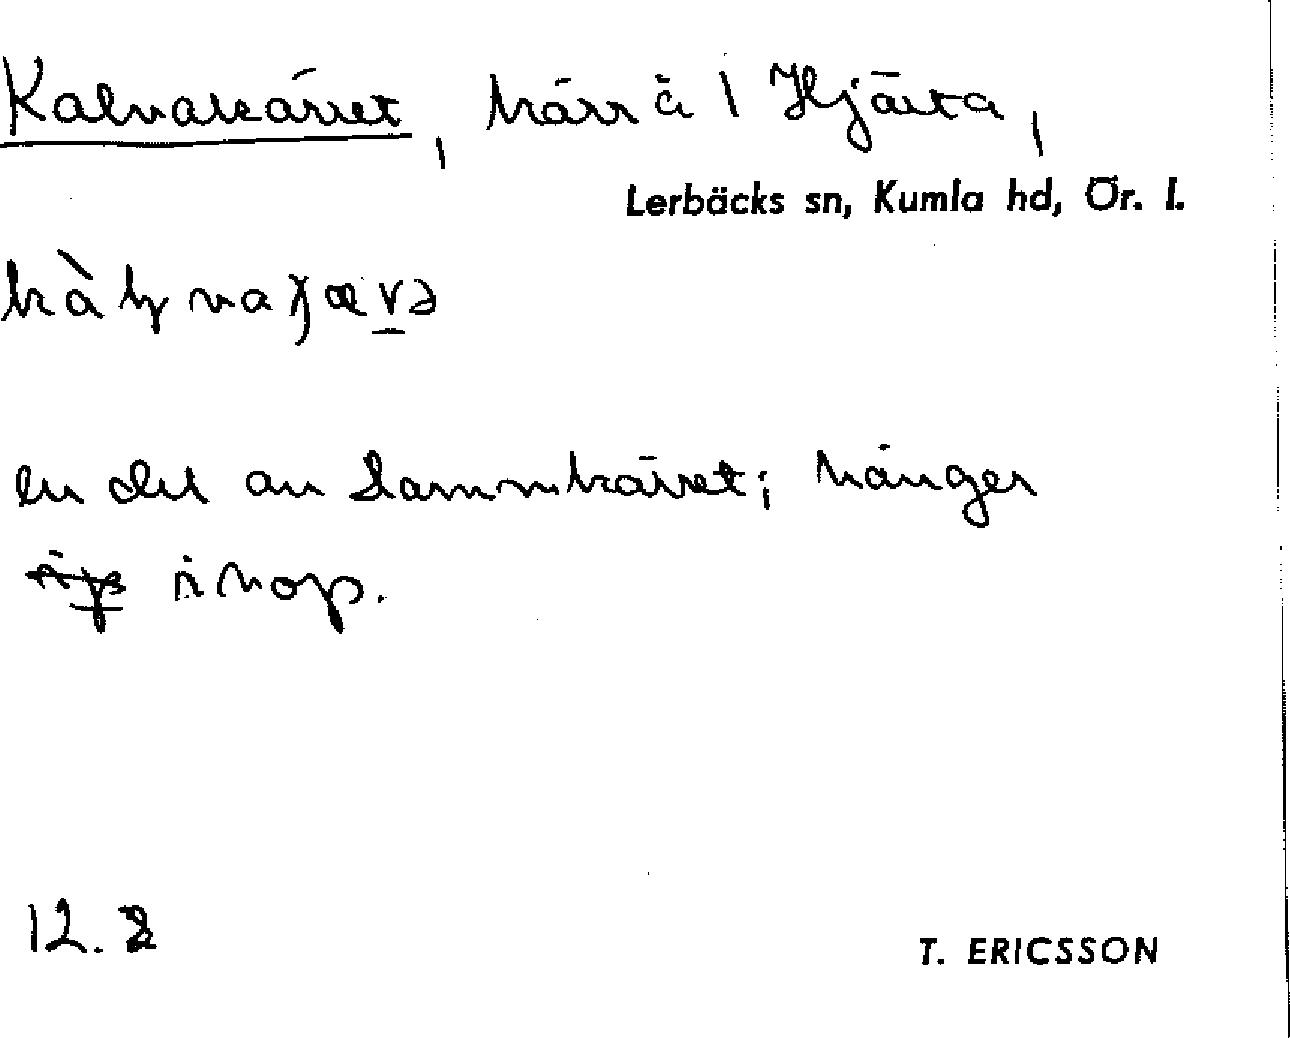 Kalvakärret, kärr å 1 Hjärta,
Lerbäcks sn, Kumla hd, Ör. l.
en del av Dammkärret; hänger
ihop.
12.2
T. ERICSSON